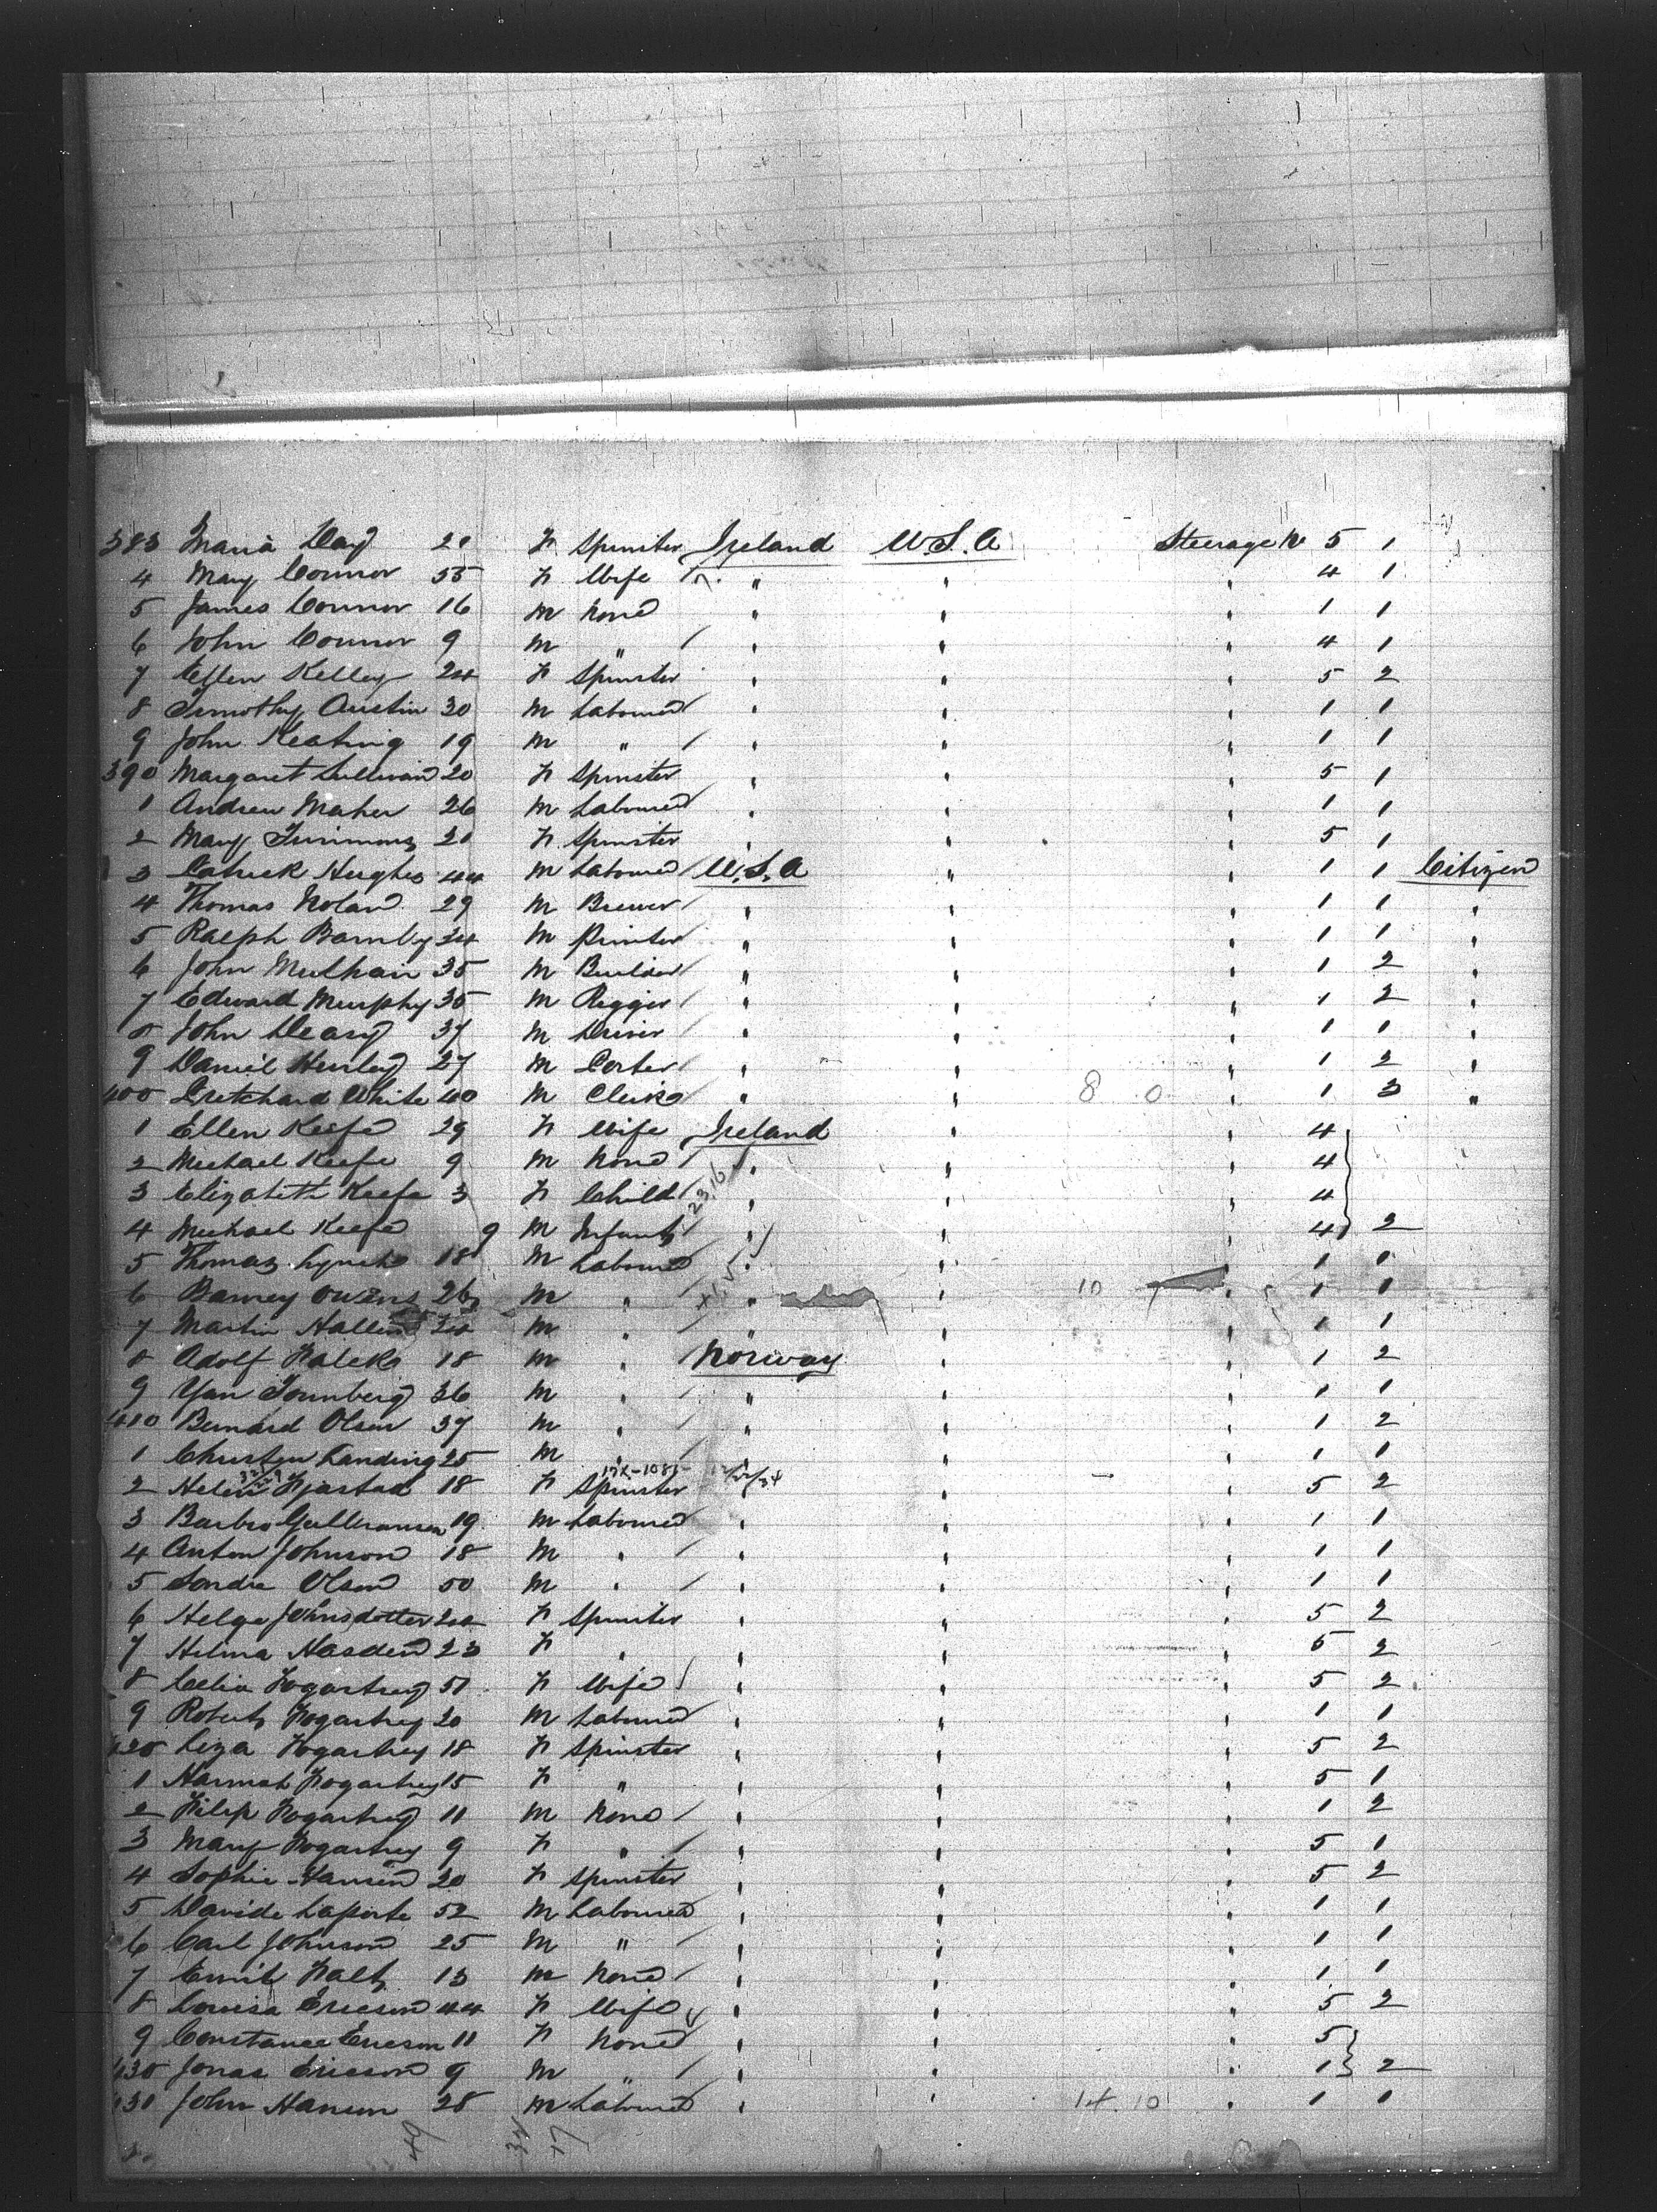 383 Maria Day 20 F Spinster Ireland U.S.A Steerage 5 1
4 Mary Connor 55 F Wife " " " 4 1
5 James Connor 16 M None " " " 1 1
6 John Connor 9 M " " " " 4 1
7 Ellen Kelley 24 F Spinster " " " 5 2
8 Timothy Austin 30 M Labourer " " " 1 1
9 John Keating 19 M " " " " 1 1
390 Margaret Sullivan 20 F Spinster " " " 5 1
1 Andrew Maher 26 M Labourer " " " 1 1
2 Mary Timmons 20 F Spinster " " " 5 1
3 Patrick Hughes 44 M Labourer U.S.A " " 1 1 Citizen
4 Thomas Nolan 29 M Brewer " " " 1 1 "
5 Ralph Barnby 24 M Printer " " " 1 1 "
6 John Mulhair 35 M Builder " " " 1 2 "
7 Edward Murphy 35 M Rigger " " " 1 2 "
8 John Deasy 37 M Driver " " " 1 1 "
9 Daniel Henley 27 M Porter " " " 1 2 "
400 Pretchard White 40 M Clerk " " 8 0 " 1 3 "
1 Ellen Keefe 29 F Wife Ireland " " 4
2 Michael Keefe 9 M None " " " 4
3 Elizabeth Keefe 3 F Child " " " 4
4 Michael Keefe 9 M Infant " " " 4 2
5 Thomas Lynch 18 M Labourer " " " 1 1
6 Barney Owens 26 M " " " 10 " 1 1
7 Martin Hallen 24 M " " " " 1 1
8 Adolf 18 M " Norway " " 1 2
9 36 M " " " " 1 1
410 Bernard Olsen 37 M " " " " 1 2
1 Landing 25 M " " " " 1 1
2 Helen 18 F Spinster " " 5 2
3 19 M Labourer " " " 1 1
4 Anton Johnson 18 M " " " " 1 1
5 Sondre Olsen 50 M " " " " 1 1
6 Helga Johnsdotter 20 F Spinster " " " 5 2
7 Hilma 23 F " " " " 5 2
8 Celia Fogartrey 51 F Wife " " " 5 2
9 Robert Fogartrey 20 M Labourer " " " 1 1
420 Liza Fogartrey 18 F Spinster " " " 5 2
1 Hannah Fogartrey 15 F " " " " 5 1
2 Filip Fogartrey 11 M None " " " 1 2
3 Mary Fogartrey 9 F " " " " 5 1
4 Sophie Hansen 20 F Spinster " " " 5 2
5 Davide Laporte 52 M Labourer " " " 1 1
6 Carl Johnson 25 M " " " " 1 1
7 Emil 13 M None " " " 1 1
8 Louisa Ericson 44 F Wife " " " 5 2
9 Constance Ericson 11 F None " " " 5
430 Jonas Ericson 9 M " " " " 1 2
John Hansen 28 M Labourer " " 14 10 " 1 1